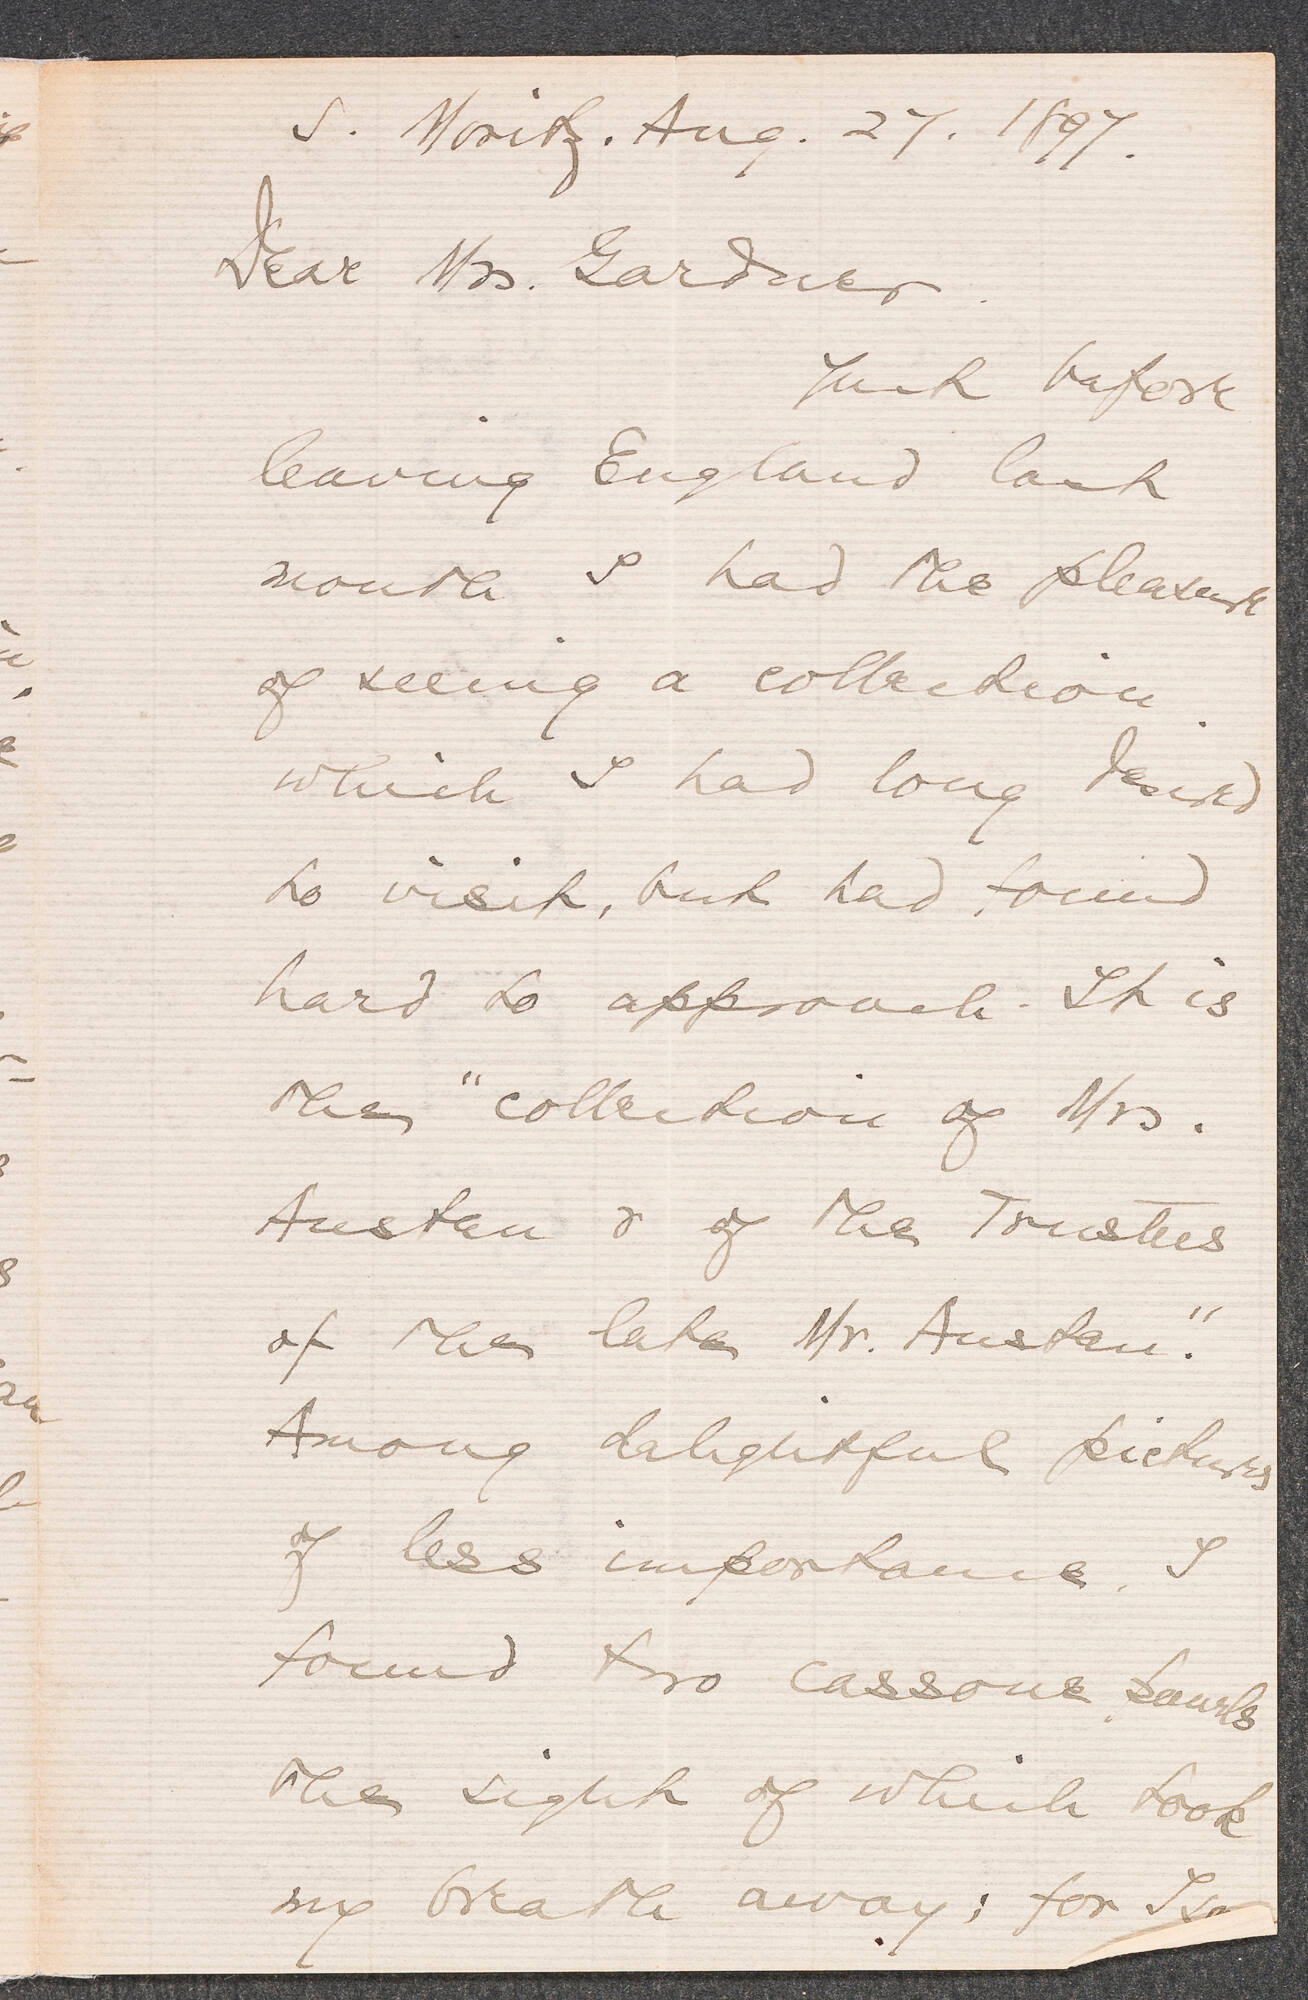 S. Moritz. Aug. 27. 1897.
Dear Mrs. Gardner.
Just before
leaving England last
month I had the pleasure
of seeing a collection
which I had long desired
to visit, but had found
hard to approach. It is
the "collection of Mrs.
Austen & of the Trustees
of the late Mr. Austen."
Among delightful pictures
of less importance, I
found two cassone panels
the sight of which took
my breath away; for I